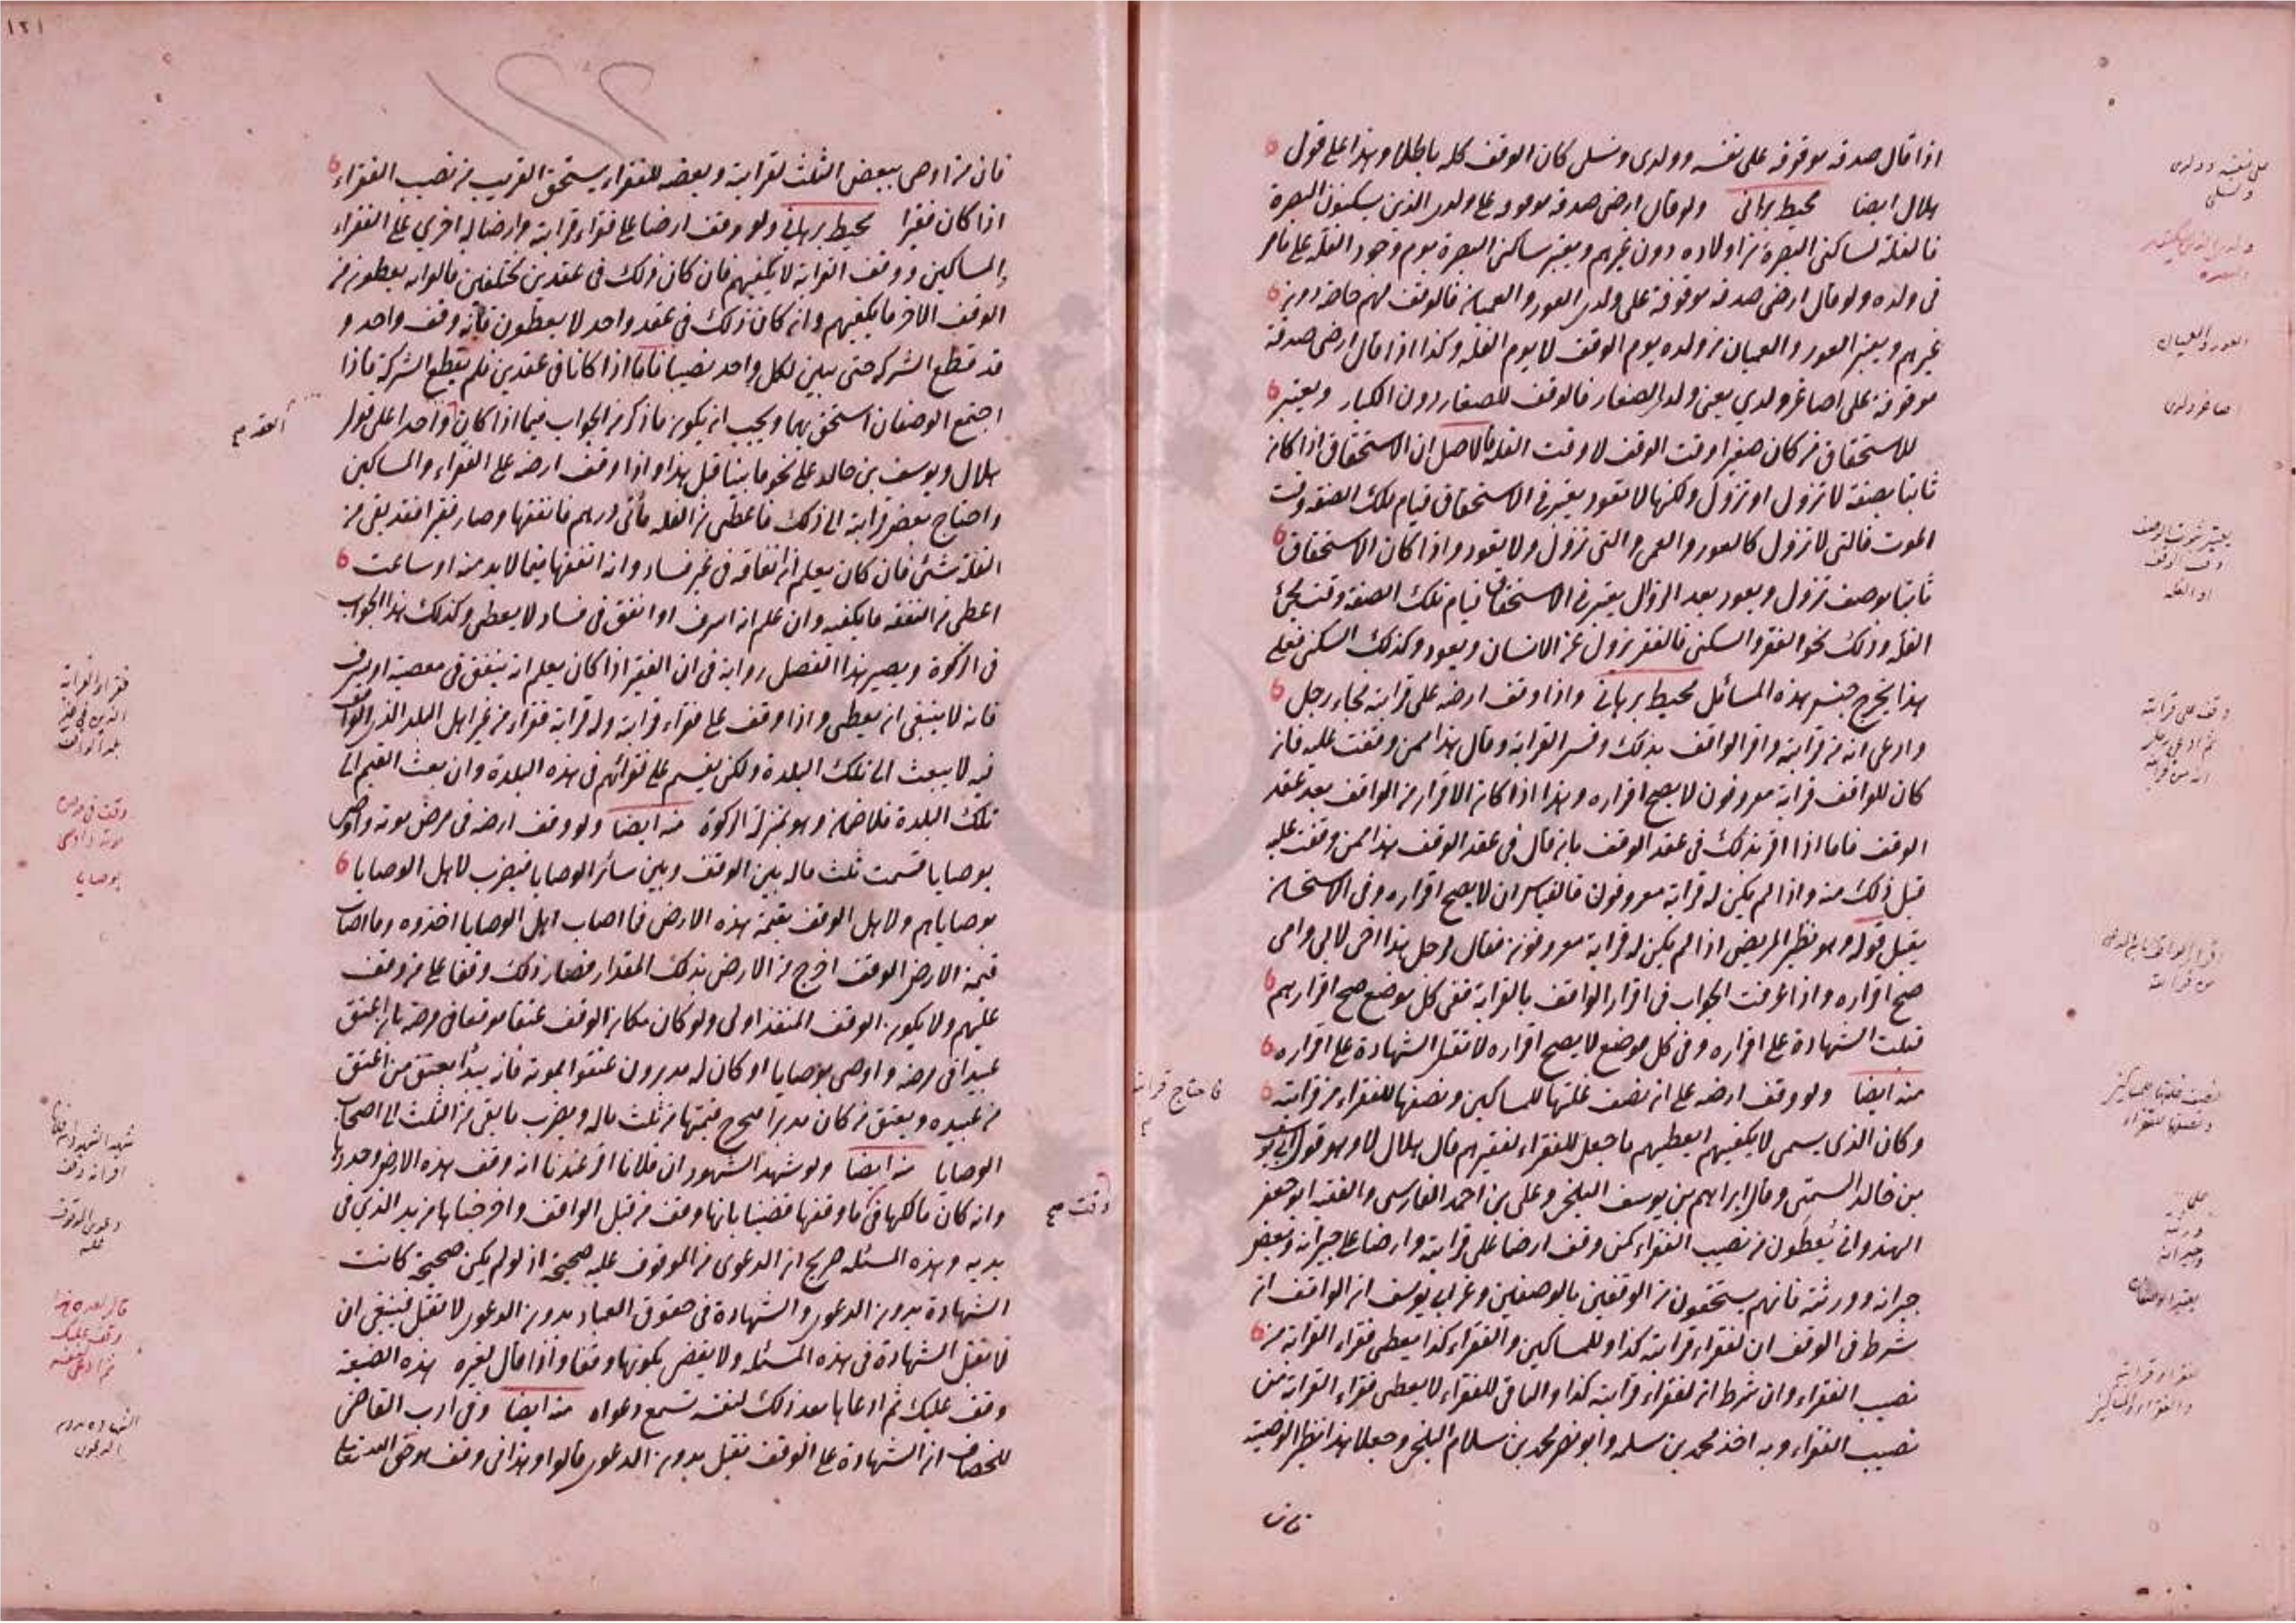 اذا قال صدقة موقوفة على نفسه وولدى ونسلى كان الوقف كله باطلا وهذا على قول
هلال ايضا محيط برهانى ولو قال ارضى صدقة موقوفة على ولدى الذين يسكنون البصرة
فالغلة لساكنى البصرة من اولاده دون غيرهم ويعتبر ساكنى البصرة يوم وجود الغلة على ما مر
فى ولده ولو قال ارضى صدقة موقوفة على ولدى العور والعميان فالوقف لهم خاصة دون
غيرهم ويعتبر العور والعميان من ولده يوم الوقف لا يوم الغلة وكذا اذا قال ارضى صدقة
موقوفة على اصاغر ولدي يعنى ولدى الصغار فالوقف للصغار دون الكبار ويعتبر
للاستحقاق من كان صغيرا وقت الوقف لا وقت الغلة فالاصل ان الاستحقاق اذا كان
ثابتا بصفة لا تزول او تزول ولكنها لا تعود يعتبر فى الاستحقاق قيام تلك الصفة وقت
الموت فالتى لا تزول كالعور والعمى والتى تزول ولا يعود واذا كان الاستحقاق
ثابتا بوصف تزول ويعود بعد الزوال يعتبر فى الاستحقاق قيام تلك الصفة وقت مجئ
الغلة وذلك نحو الفقر والسكنى فالفقر يزول عن الانسان ويعود وكذلك السكنى فعلى
هذا يخرج جنس هذه المسائل محيط برهانى واذا وقف ارضه على قرابته فجاء رجل
وادعى انه من قرابته واقر الواقف بذلك وفسر القرابة وقال هذا ممن وقفت عليه فان
كان للواقف قرابة معروفون لا يصح اقراره وهذا اذا كان الاقرار من الواقف بعد عقد
الوقف فاما اذا اقر بذلك فى عقد الوقف بان قال فى عقد الوقف هذا ممن وقفت عليه
قبل ذلك منه واذا لم يكن له قرابة معروفون فالقياس ان لا يصح اقراره وفى الاستحسان
يقبل قوله وهو نظير المريض اذا لم يكن له قرابة معروفون فقال لرجل هذا اخى لابى وامى
صح اقراره واذا عرفت الجواب فى اقرار الواقف بالقرابة ففى كل موضع صح اقرارهم
قبلت الشهادة على اقراره وفى كل موضع لا يصح اقراره لا تقبل الشهادة على اقراره
منه ايضا ولو وقف ارضه على ان نصف غلتها للمساكين ونصفها للفقراء من قرابته
فاحتاج قرابته
وكان الذى يسمى لا يكفيهم ايعطيهم ما جعل للفقراء لفقرهم قال هلال لا وهو قول ابى يوسف
بن خالد السمتى وقال ابراهيم بن يوسف البلخى وعلى بن احمد الفارسى والفقيه ابو جعفر
الهندوانى يعطون من نصيب الفقراء كمن وقف ارضا على قرابته وارضا على جيرانه وبعض
جيرانه وورثته فانهم يستحقون من الوقفين بالوصفين وعن ابى يوسف ان الواقف ان
شرط فى الوقف ان لفقراء قرابته كذا وللمساكين والفقراء كذا يعطى فقراء القرابة من
نصيب الفقراء وان شرط ان لفقراء قرابته كذا والباقى للفقراء لا يعطى فقراء القرابة من
نصيب الفقراء وبه اخذ محمد بن سلمه وابو نصر محمد بن سلام البلخى وجعلا هذا نظير الوصية
فان
على نفسه وولدى
ونسلى
العور والعميان
اصاغر ولدى
وقف على قرابته
ثم ادعى رجل
انه من قرابته
١٢١
فان من اوصى ببعض الثلث لقرابته وبعضه للفقراء يستحق القريب من نصيب الفقراء
اذا كان فقيرا محيط برهانى ولو وقف ارضا على فقراء قرابته وارضا له اخرى على الفقراء
والمساكين ووقف القرابة لا يكفيهم فان كان ذلك فى عقدين مختلفين قالوا انه يعطون من
الوقف الاخر ما يكفيهم وان كان ذلك فى عقد واحد لا يعطون فانه وقف واحد و
قد قطع الشركة حتى بين لكل واحد نصيبا فاما اذا كانا فى عقدين فلم يقطع الشركة فاذا
اجتمع الوصفان استحق بهما ويجب ان يكون ما ذكر من الجواب فيما اذا كان واحدا على قول
العقد صح
هلال ويوسف بن خالد على نحو ما بينا قبل هذا واذا وقف ارضه على الفقراء والمساكين
واحتاج بعض قرابته الى ذلك فاعطى من الغلة مأتى درهم فانفقها وصار فقيرا فقد بقى من
الغلة شئ فان كان يعلم ان انفاقه فى غير فساد وانه انفقها فيما لا بد منه او ساعت
اعطى من النفقة ما يكفيه وان علم انه اسرف او انفق فى فساد لا يعطى وكذلك هذا الجواب
فى الزكوة ويصير هذا الفصل رواية فى ان الفقير اذا كان يعلم انه ينفق فى معصية او يسرف
فانه لا ينبغى ان يعطى واذا وقف على فقراء قرابته وله قرابة فقراء من غير اهل البلد الذى الواقف
فيه لا يبعث الى تلك البلدة ولكن يقسم على فقرائهم فى هذه البلدة وان بعث القيم الى
تلك البلدة فلا ضمان وهو بمنزلة الزكوة منه ايضا ولو وقف ارضه فى مرض موته واوصى
بوصايا قسمت ثلث ماله بين الوقف وبين سائر الوصايا فيضرب لاهل الوصايا
بوصاياهم ولاهل الوقف بقيمة هذه الارض فما اصاب اهل الوصايا اخذوه وما اصاب
قيمة الارض الوقف اخرج من الارض بذلك المقدار فصار ذلك وقفا على من وقف
عليهم ولا يكون الوقف المنفذ اولى ولو كان مكان الوقف عتقا موقعا فى مرضه بان اعتق
عبيدا فى مرضه واوصى بوصايا او كان له مدبرون عتقوا بموته فانه يبدأ بعتق من اعتق
من عبيده ويعتق من كان مدبرا فيخرج قيمتها من ثلث ماله ويضرب ما بقى من الثلث الى اصحاب
الوصايا منه ايضا ولو شهد الشهود ان فلانا اقر عندنا انه وقف هذه الارض وحدودها
وانه كان مالكها فى ما وقفها قضينا بانها وقف من قبل الواقف واخرجناها من يد الذى فى
وقت صح
يديه وهذه المسئلة صريح ان الدعوى من الموقوف عليه صحيحة اذ لو لم يكن صحيحة كانت
الشهادة بدون الدعوى والشهادة فى حقوق العباد بدون الدعوى لا تقبل فينبغى ان
لا تقبل الشهادة فى هذه المسئله ولا يقضى بكونها وقفا واذا قال لغيره هذه الضيعة
وقف عليك ثم ادعاها بعد ذلك لنفسه تسمع دعواه منه ايضا وفى ادب القاضى
للخصاف ان الشهادة على الوقف تقبل بدون الدعوى قالوا وهذا فى وقف هو حق الله تعالى
وقف فى مرض
موته واوصى
بوصايا